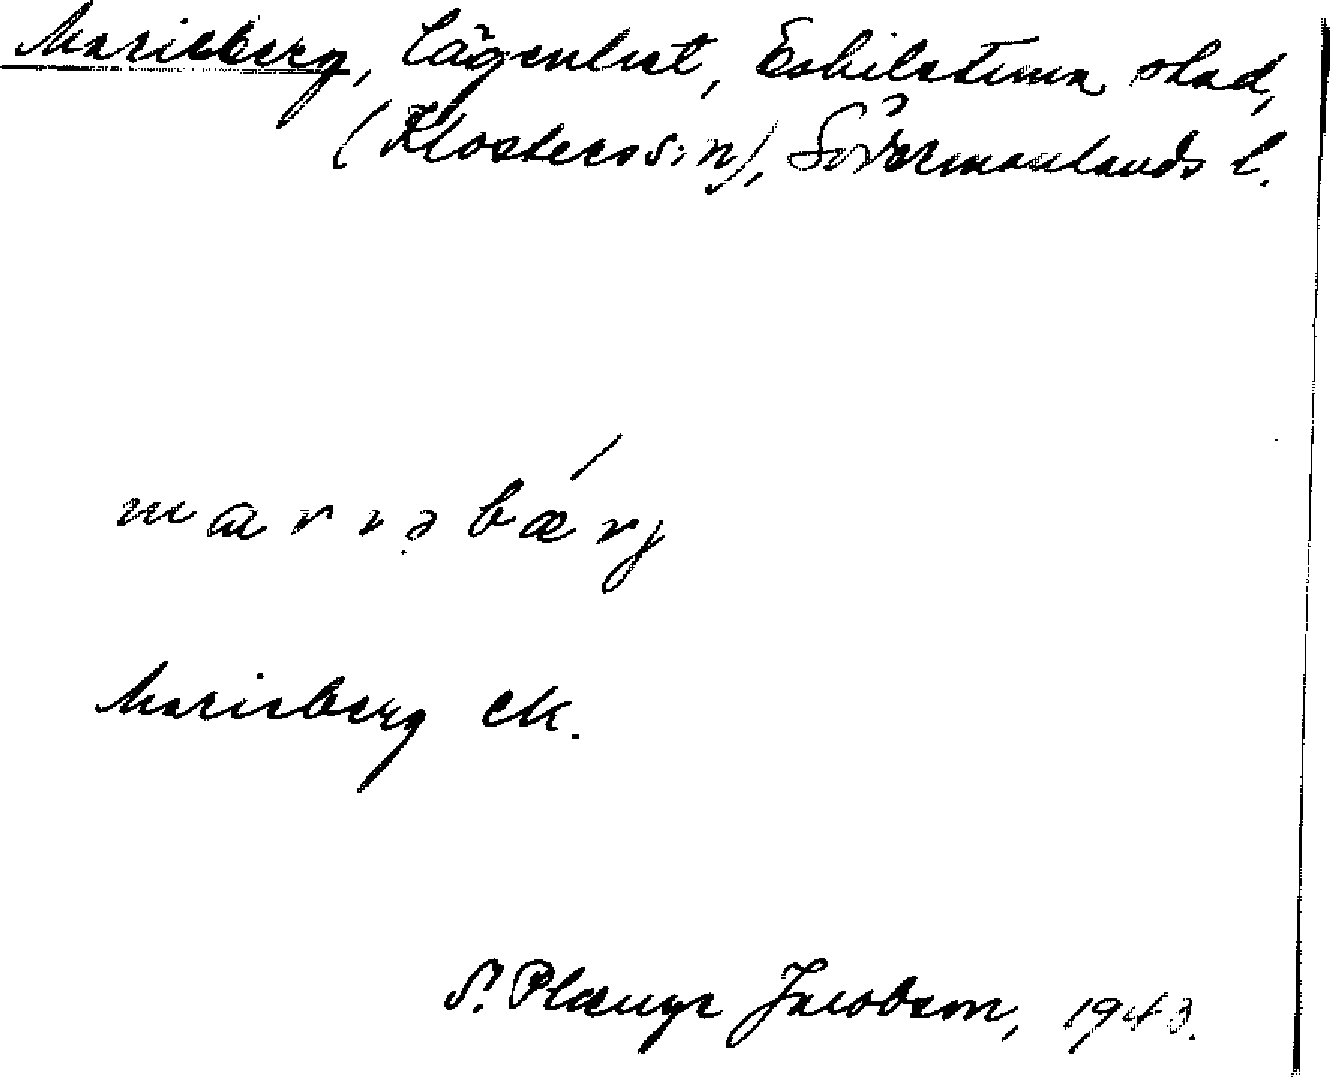 Marieberg, lägenhet, Eskilstuna stad,
(Klosters s:n), Södermanlands l.
marıəbærj
Marieberg ek.
S. Jacobson, 1943.